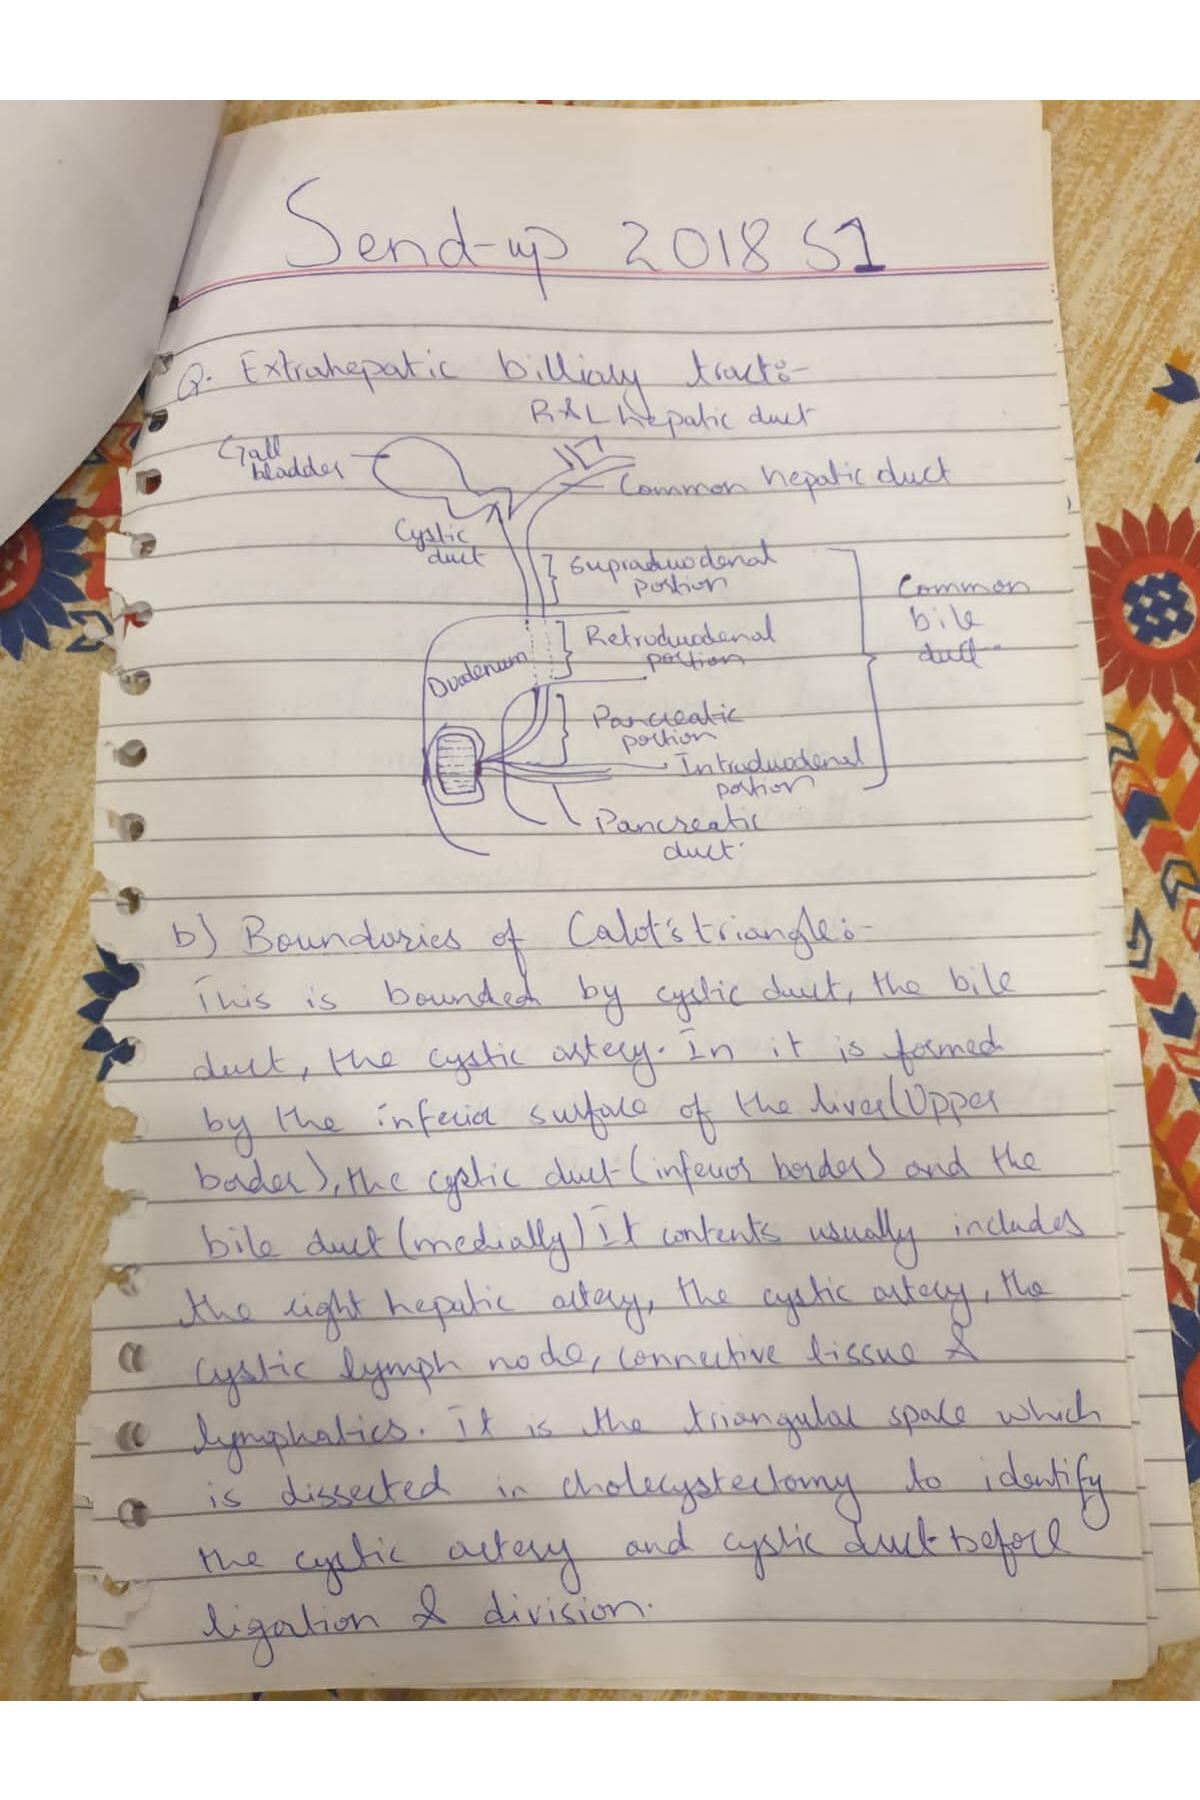 Send-up 2018 S1
Q. Extrahepatic billialy tract:-
R & L hepatic duct
Gall
bladder
Common hepatic duct
Cystic
duct
Supraduodenal
portion
Common
bile
duct
Retroduodenal
portion
Duodenum
Pancreatic
portion
Intraduodenal
portion
Pancreatic
duct.
b) Boundaries of Calot's triangle:-
This is bounded by cystic duct, the bile
duct, the cystic artery. In it is formed
by the inferior surface of the liver (Upper
border), the cystic duct (inferior border) and the
bile duct (medially) It contents usually includes
the right hepatic artery, the cystic artery, the
cystic lymph node, connective tissue &
lymphatics. It is the triangular space which
is dissected in cholecystectomy to identify
the cystic artery and cystic duct before
ligation & division.